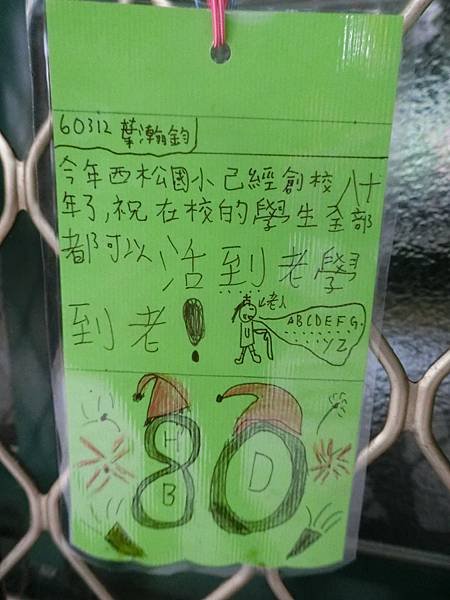 60312 葉瀚鈞
今年西松國小已經創校八十
年了,祝在校的學生全部
都可以活到老學
到老!
老人
ABCDEFG.
YZ
80
H D
B